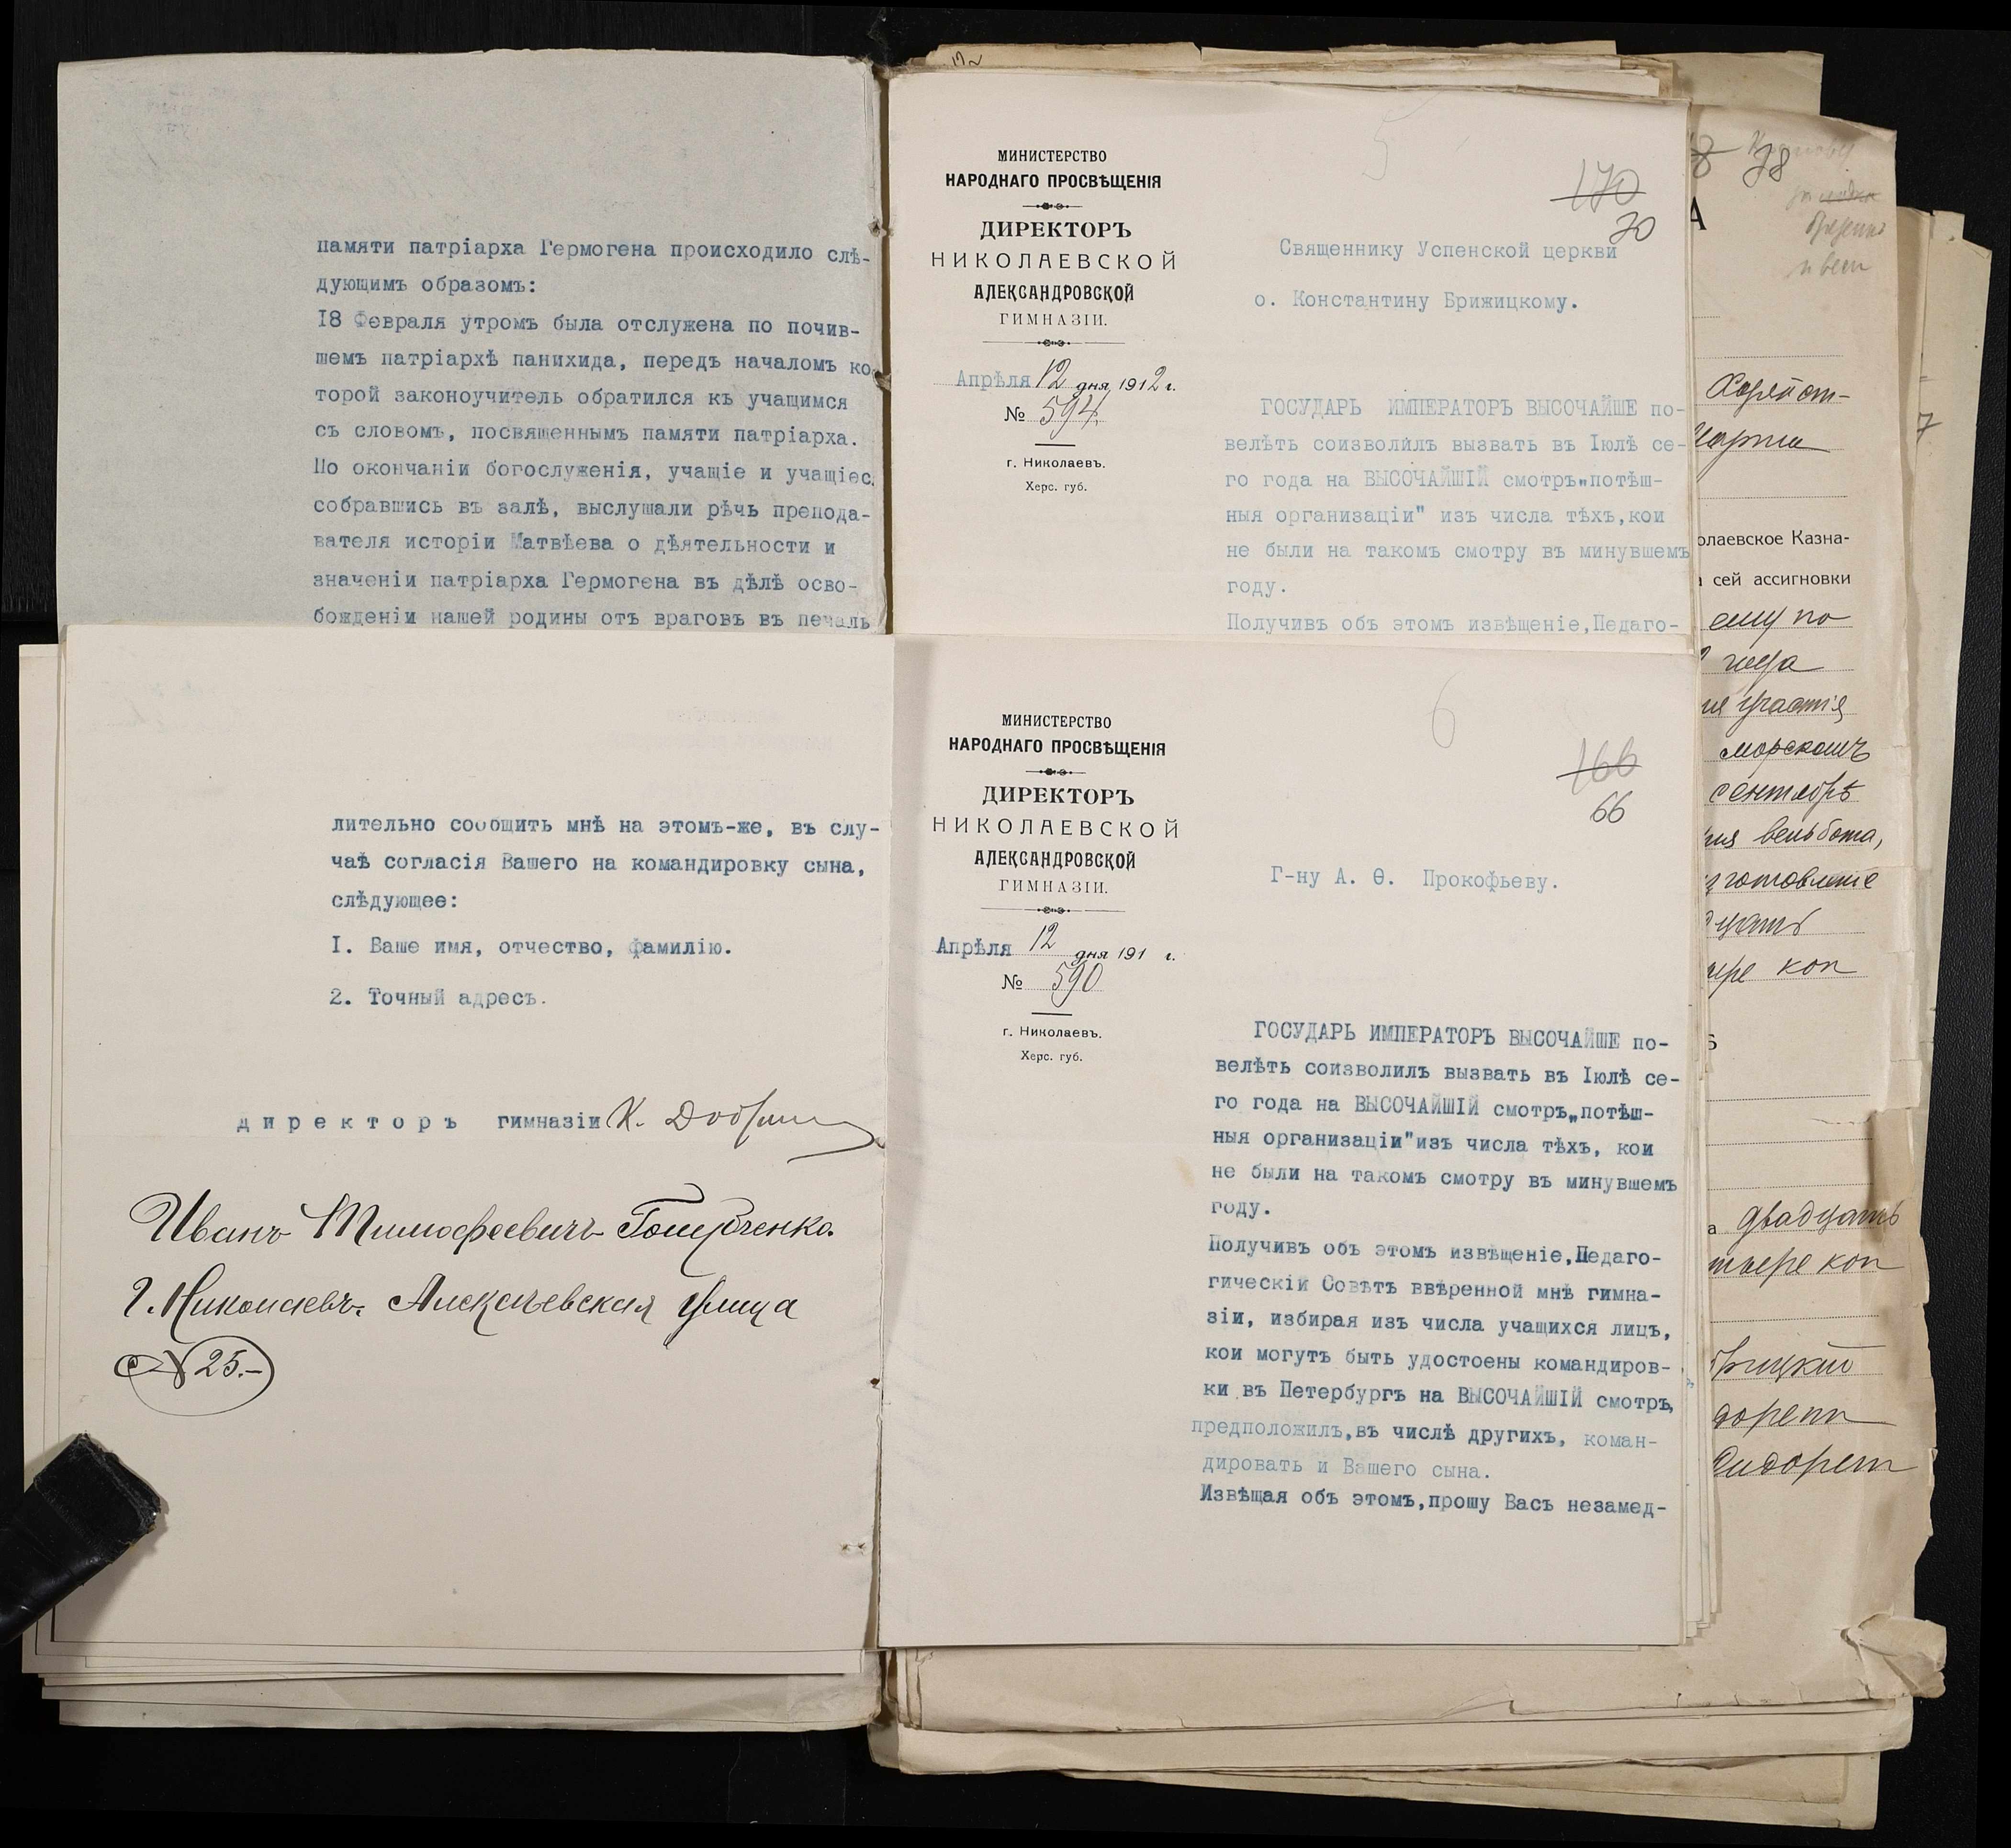 памяти патріарха Гермогена происходило слѣ-
дующимъ образомъ:
18 Февраля утромъ была отслужена по почив-
шемъ патріархѣ панихида, передъ началомъ ко
торой законоучитель обратился къ учащимся
съ словомъ, посвященнымъ памяти патріарха.
По окончаніи богослуженія, учащіе и учащіес
собравшись въ залѣ, выслушали рѣчь препода-
вателя исторіи Матвѣева о дѣятельности и
значеніи патріарха Гермогена въ дѣлѣ осво-
божденіи нашей родины отъ враговъ въ печаль
5
МИНИСТЕРСТВО
НАРОДНАГО ПРОСВѢЩЕНІЯ
ДИРЕКТОРЪ
НИКОЛАЕВСКОЙ
АЛЕКСАНДРОВСКОЙ
ГИМНАЗІИ.
Апрѣля 12 дня 1912 г.
№ 594.
г. Николаевъ.
Херс. губ.
170
70
Священнику Успенской церкви
о. Константину Брижицкому.
ГОСУДАРЬ ИМПЕРАТОРЪ ВЫСОЧАЙШЕ по-
велѣть соизволилъ вызвать въ Іюлѣ се-
го года на ВЫСОЧАЙШІЙ смотръ„потѣш-
ныя организаціи" изъ числа тѣхъ,кои
не были на такомъ смотру въ минувшемъ
году.
Получивъ объ этомъ извѣщеніе,Педаго-
лительно сообщить мнѣ на этомъ-же, въ слу-
чаѣ согласія Вашего на командировку сына,
слѣдующее:
I. Ваше имя, отчество, фамилію.
2. Точный адресъ.
директоръ гимназіи К.
Иванъ Тимофеевичъ Голубченко.
г. Николаевъ. Алексѣевская улица
№ 25.-
6
МИНИСТЕРСТВО
НАРОДНАГО ПРОСВѢЩЕНІЯ
ДИРЕКТОРЪ
НИКОЛАЕВСКОЙ
АЛЕКСАНДРОВСКОЙ
ГИМНАЗІИ.
Апрѣля 12 дня 191 г.
№ 590
г. Николаевъ.
Херс. губ.
166
66
Г-ну А. Ѳ. Прокофьеву.
ГОСУДАРЬ ИМПЕРАТОРЪ ВЫСОЧАЙШЕ по-
велѣть соизволилъ вызвать въ Іюлѣ се-
го года на ВЫСОЧАЙШІЙ смотръ„потѣш-
ныя организаціи"изъ числа тѣхъ, кои
не были на такомъ смотру въ минувшемъ
году.
Получивъ объ этомъ извѣщеніе,Педаго-
гическій Совѣтъ ввѣренной мнѣ гимна-
зіи, избирая изъ числа учащихся лицъ,
кои могутъ быть удостоены командиров-
ки въ Петербургъ на ВЫСОЧАЙШІЙ смотръ,
предположилъ,въ числѣ другихъ, коман-
дировать и Вашего сына.
Извѣщая объ этомъ,прошу Васъ незамед-
78
А
олаевское Казна-
сей ассигновки
ему по
года
участія
морскомъ
сентябрѣ
вельбота,
изготовленіе
коп
двадцать
коп